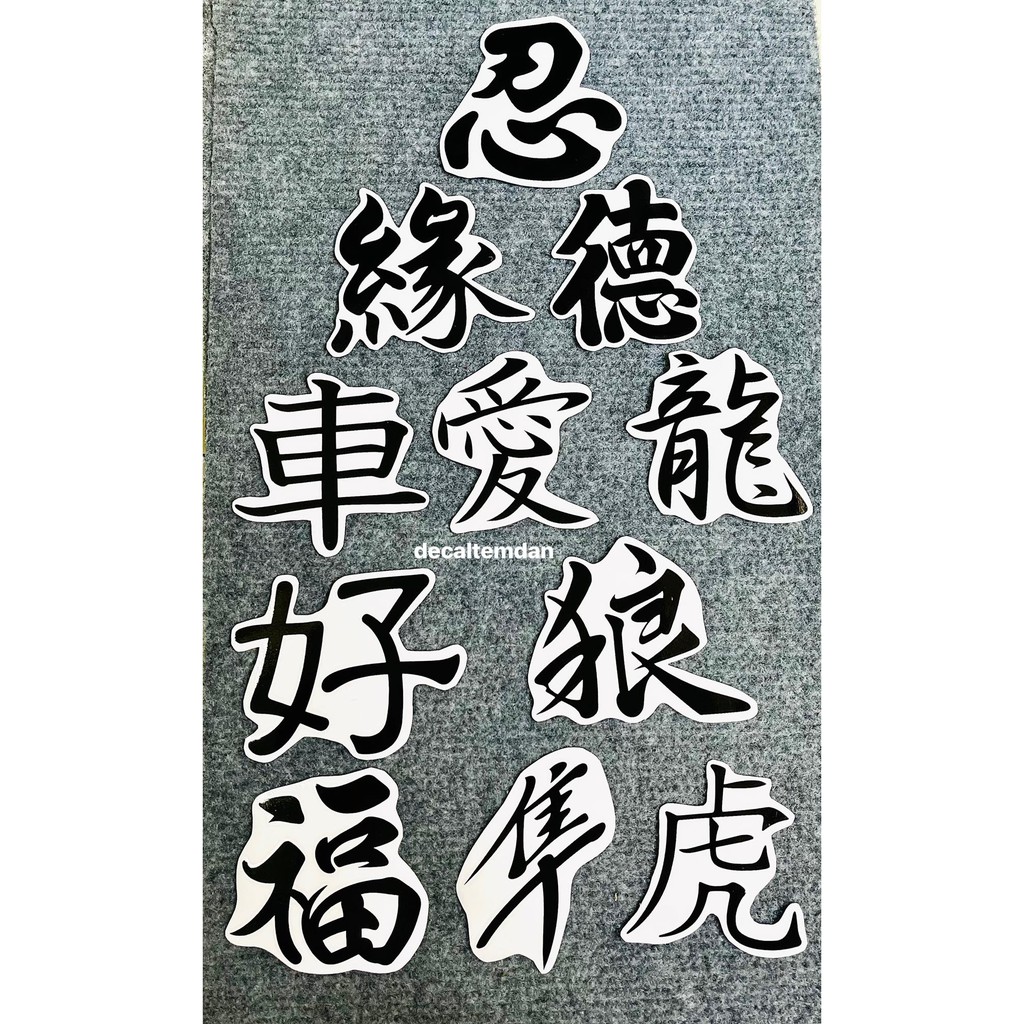 忍
緣 德
車 愛 龍
decaltemdan
好 狼
福 隼 虎